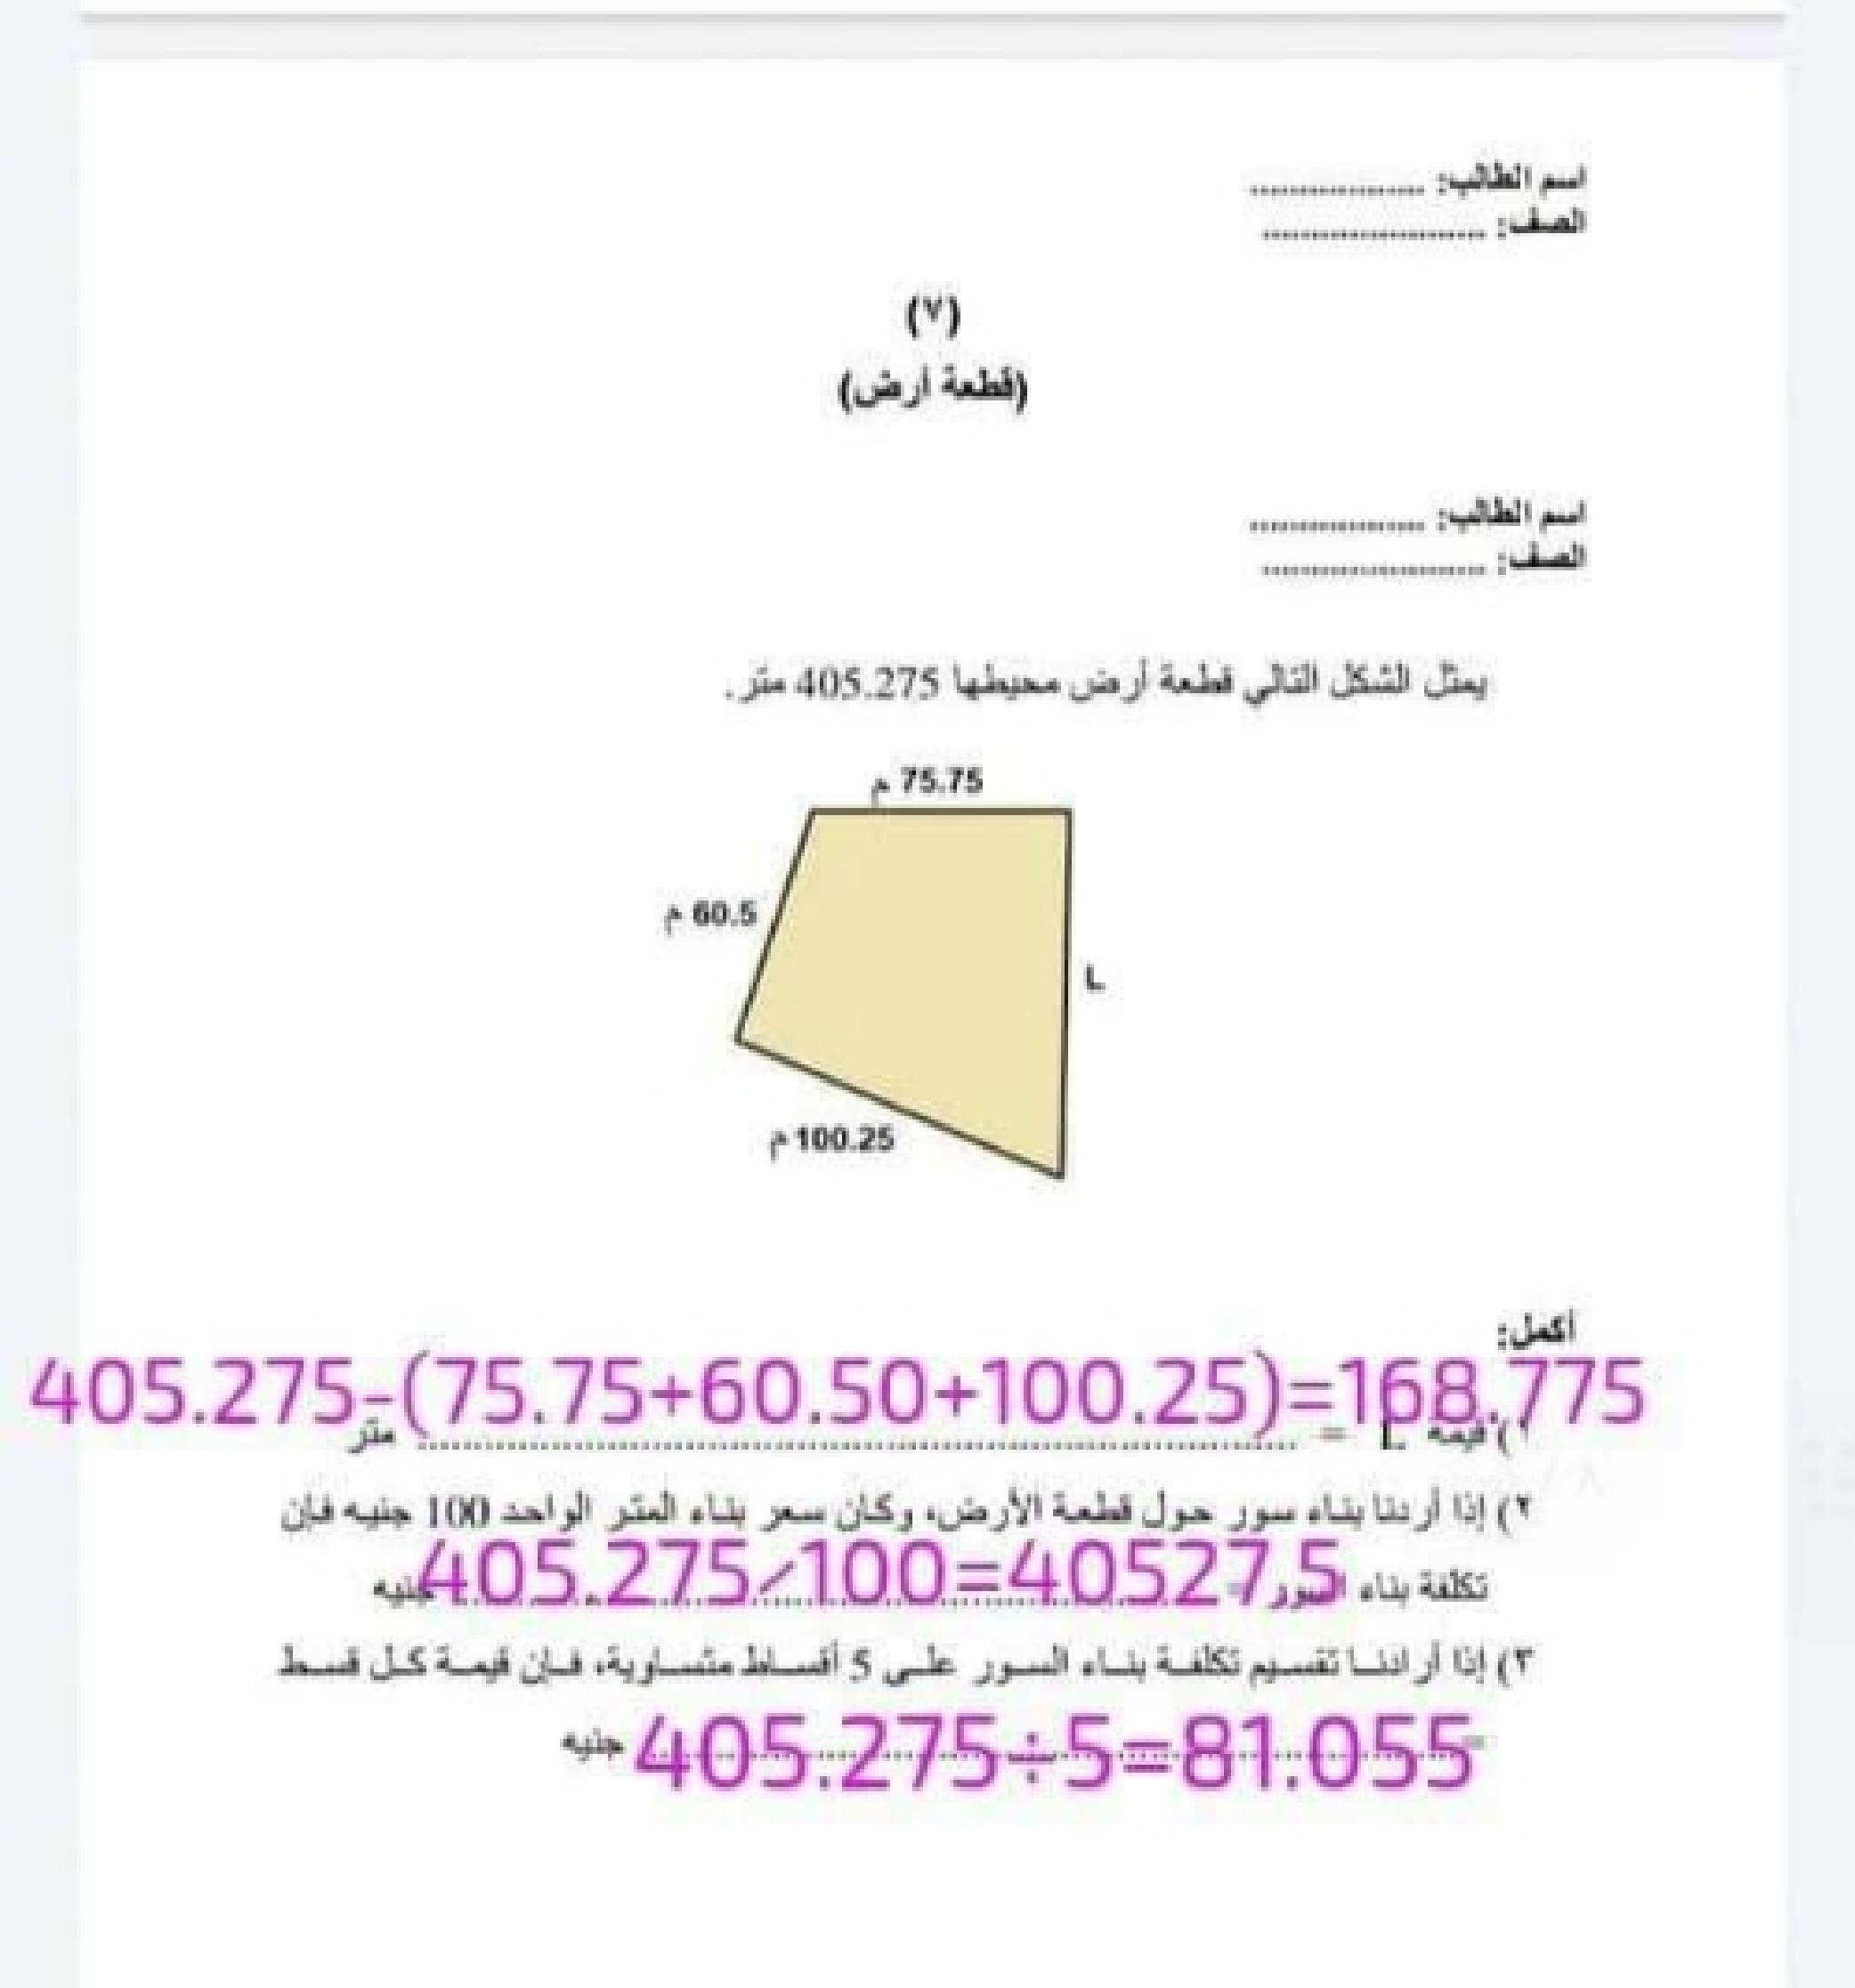 اسم الطالب: ..................
الصف: .......................
(٧)
(قطعة أرض)
اسم الطالب: ..................
الصف: .......................
يمثل الشكل التالي قطعة أرض محيطها 405.275 متر.
75.75 م
60.5 م
L
100.25 م
أكمل:
405.275-(75.75+60.50+100.25)=168.775
١) قيمة L = .......................... متر
٢) إذا أردنا بناء سور حول قطعة الأرض، وكان سعر بناء المتر الواحد 100 جنيه فإن
تكلفة بناء السور = 405.275×100=40527.5 جنيه
٣) إذا أرادنا تقسيم تكلفة بناء السور على 5 أقساط متساوية، فإن قيمة كل قسط
= 405.275÷5=81.055 جنيه